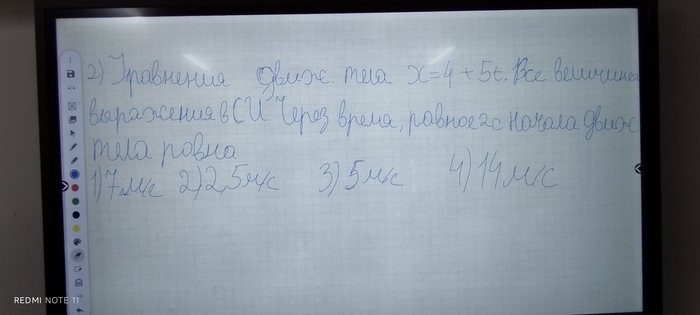 2) Уравнения движ тела x=4+5t. Все величины
выражения в СИ Через время, равное 2с начала движ
тела ровна
1) 7 м/с 2) 2,5 м/с 3) 5 м/с 4) 14 м/с
REDMI NOTE 11